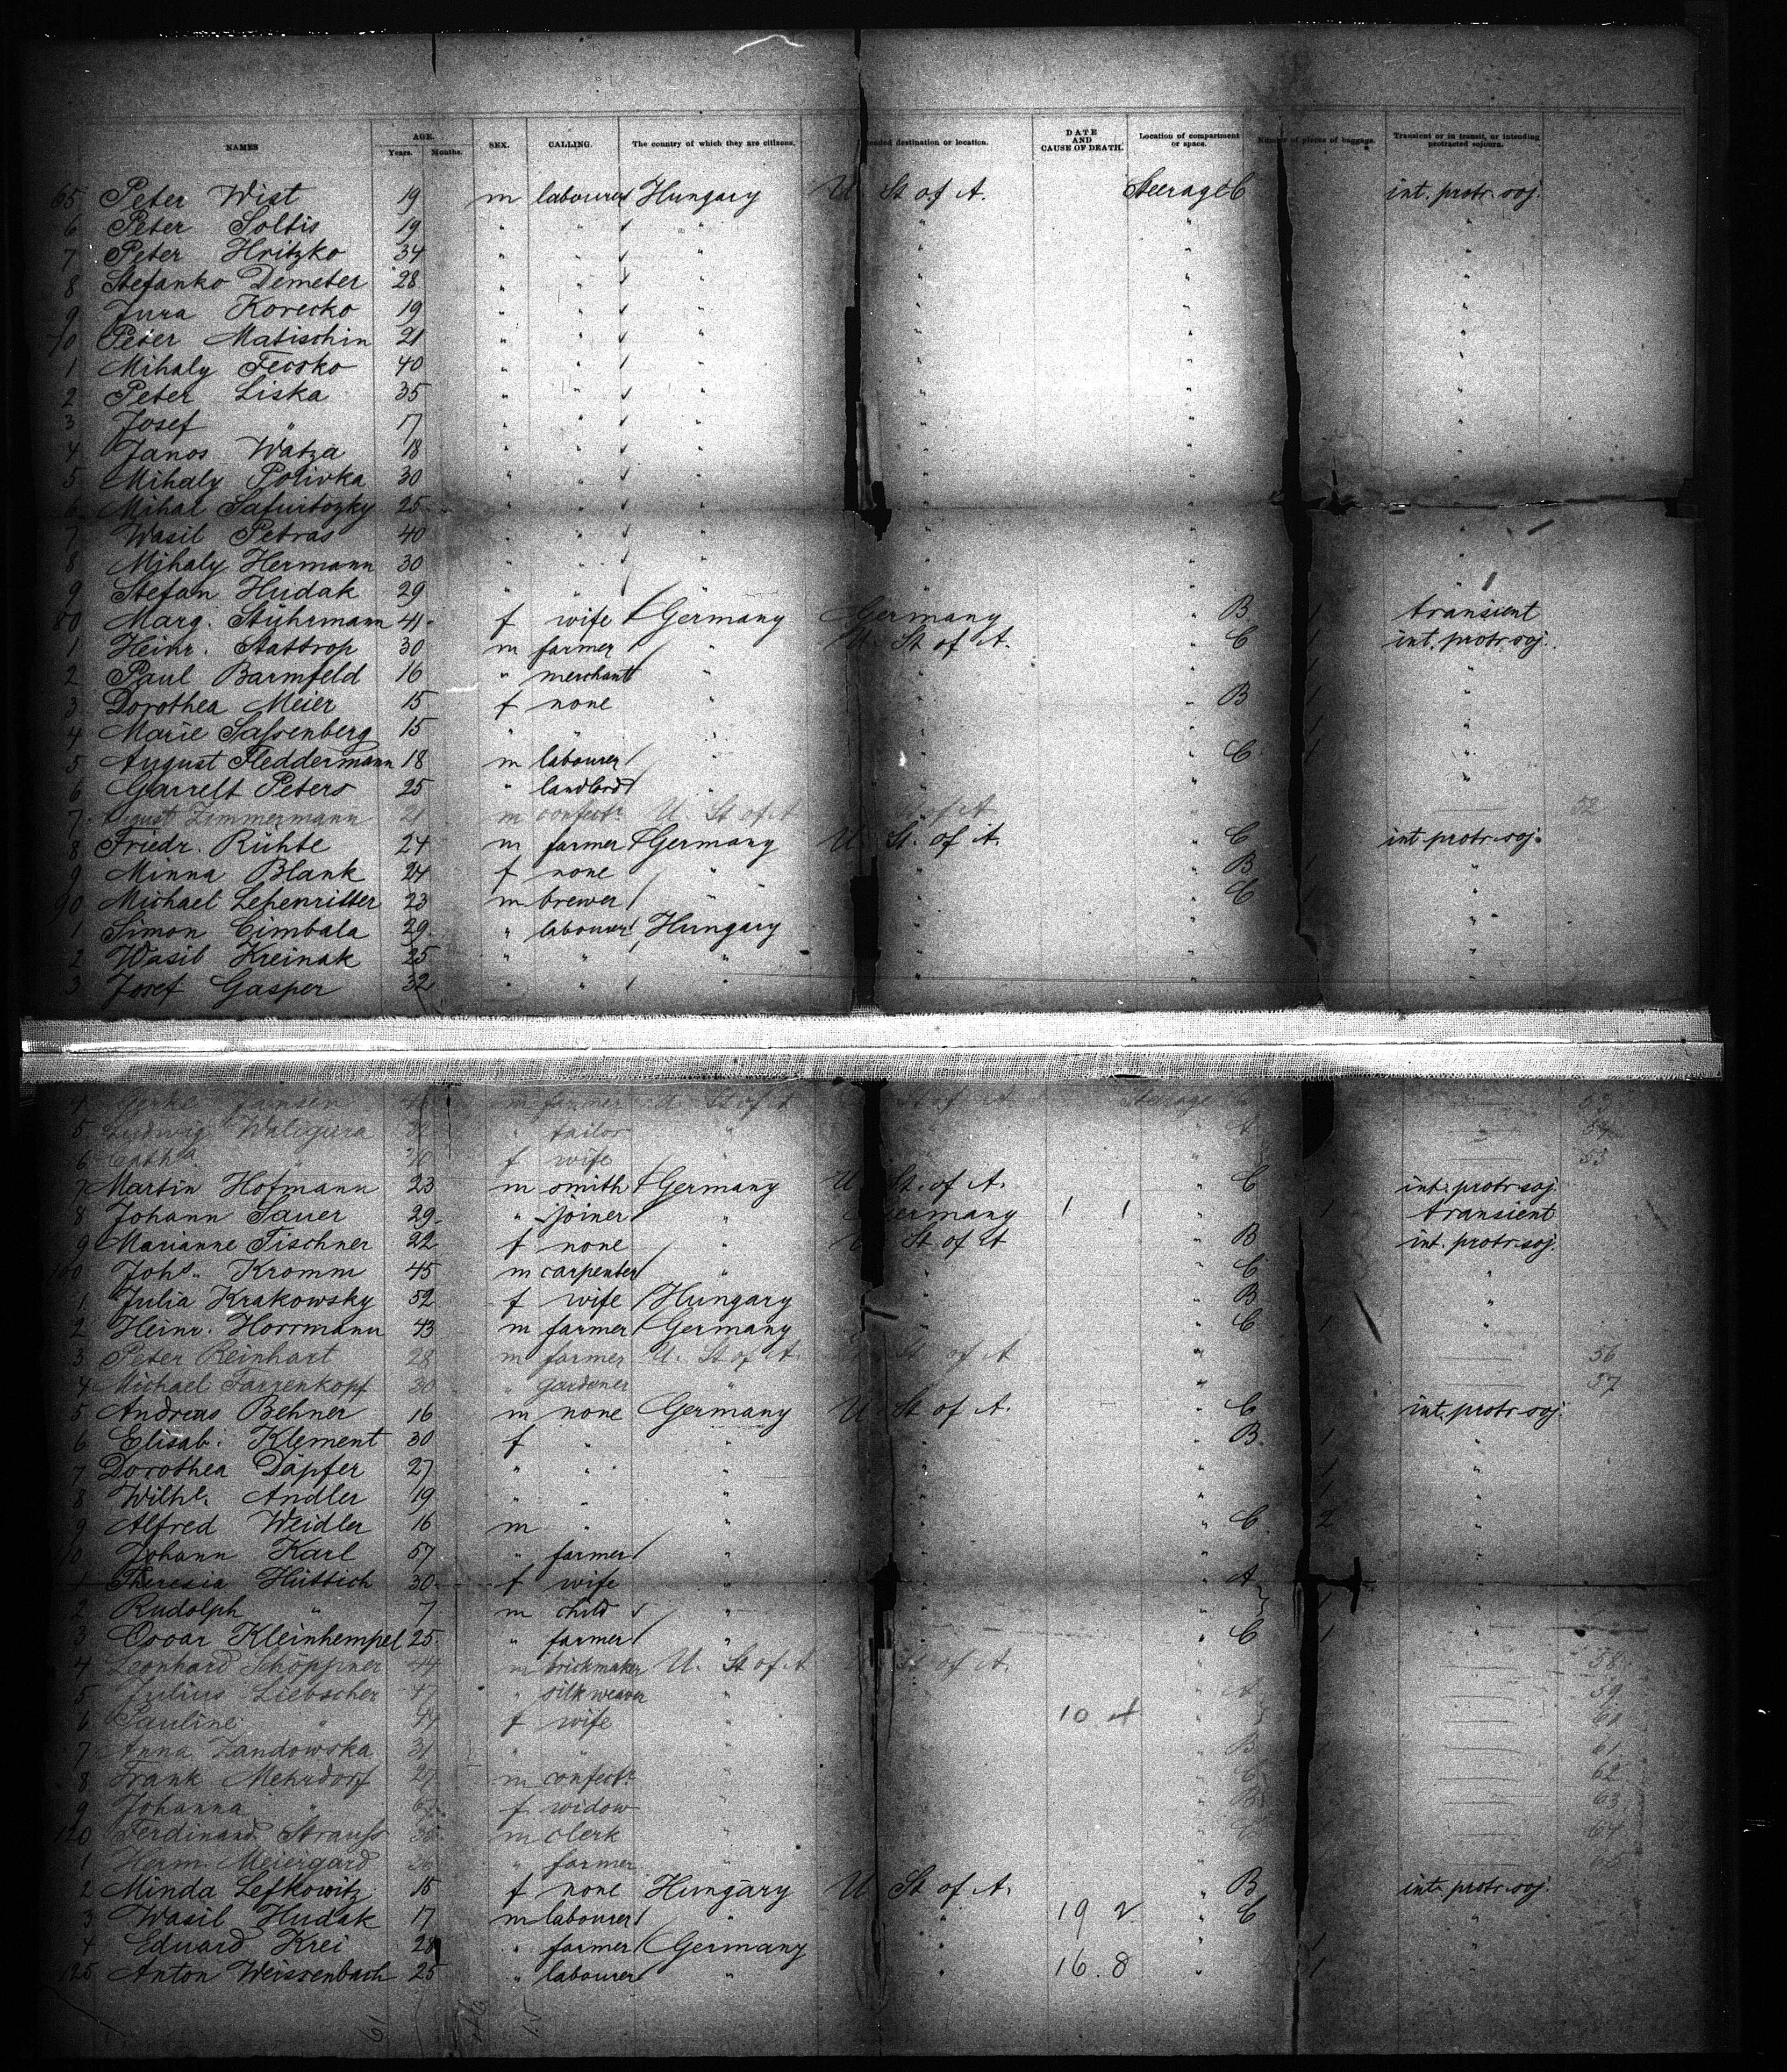 NAMES AGE. Years. Months. SEX. CALLING. The country of which they are citizens. destination or location. DATE AND CAUSE OF DEATH. Location of compartment or space. Number of pieces of baggage. Transient or in transit, or intending protracted sojourn.
65 Peter Wist 19 m labourer Hungary U St of A. Steerage C int. protr. soj.
6 Peter Soltis 19 " " " " " "
7 Peter Hritzko 34 " " " " " "
8 Stefanko Demeter 28 " " " " " "
9 Jura Korecko 19 " " " " " "
70 Peter Matischin 21 " " " " " "
1 Mihaly Fecsko 40 " " " " " "
2 Peter Liska 35 " " " " " "
3 Josef " 17 " " " " " "
4 Janos Watza 18 " " " " " "
5 Mihaly Polivka 30 " " " " " "
6 Mihal 25 " " " " " "
7 Wasil Petras 40 " " " " " "
8 Mihaly Hermann 30 " " " " " "
9 Stefan Hudak 29 " " " " " "
80 Marg. Stührmann 41 f wife Germany Germany " B 1 transient
1 Heinr. Stattrop 30 m farmer " U. St of A. " C 1 int. protr. soj.
2 Paul Barmfeld 16 " merchant " " " 1 "
3 Dorothea Meier 15 f none " " " B 1 "
4 Marie Saſsenberg 15 " " " " " 1 "
5 August Fleddermann 18 m labourer " " C 1 "
6 Garrelt Peters 25 " landlord " " " "
7 August Zimmermann 21 m confectr. U. St of A St of A 52
8 Friedr. Rühte 24 m farmer Germany U St. of A. " C int protr. soj.
9 Minna Blank 24 f none " " " B 1 "
90 Michael Lehenritter 23 m brewer " " " C 1 "
1 Simon Cimbala 29 " labourer Hungary " " "
2 Wasil Kreinak 25 " " " " " "
3 Josef Gasper 32 " " " " " "
4 Gerke Jansen m farmer U. St of A St of A. Steerage C 53
5 Ludwig Waligura " tailor " " A 54
6 Cath " f wife " " 55
7 Martin Hofmann 23 m smith Germany U St. of A. " C int. protr soj.
8 Johann Sauer 29 " joiner " Germany 1 1 " 1 transient
9 Marianne Tischner 22 f none " U St of A " B int. protr. soj.
100 Johs. Kromm 45 m carpenter " " " C "
1 Julia Krakowsky 52 f wife Hungary " " B "
2 Heinr. Horrmann 43 m farmer Germany " " C 1 "
3 Peter Reinhart 28 m farmer U. St of A. St of A " 56
4 Michael Farrenkopf 30 " gardener " " 57
5 Andreas Behner 16 m none Germany U St of A. " C int. protr. soj.
6 Elisab. Klement 30 f " " " " B. 1 "
7 Dorothea Däpfer 27 " " " " " 1 "
8 Wilhl. Andler 19 " " " " " 1 "
9 Alfred Weidler 16 m " " " " C. 2 "
110 Johann Karl 57 " farmer " " " "
1 Theresia Hüttich 30 f wife " " " A "
2 Rudolph " 7 m child " " " 1 "
3 Oscar Kleinhempel 25 " farmer " " " C 1 "
4 Leonhard Schöppner 44 m brickmaker U. St of A St of A. 58
5 Julius Liebscher 47 " silk weaver " A 59
6 Pauline " 44 f wife " 10 4 60
7 Anna Zandowska 31 " " B 61
8 Frank Mehrdorf 27 m confectr. " C 62
9 Johanna " f widow B 63
120 Ferdinand Strauſs m clerk " C 64
1 Herm. Meiergard " farmer 65
2 Minda Lefkowitz 15 f none Hungary U St of A. " B int. protr. soj.
3 Wasil Hudak 17 m labourer " " 19 2 " C "
4 Eduard Krei 28 " farmer Germany " " 1 "
125 Anton Weissenbach 25 " labourer " " 16 8 " 1